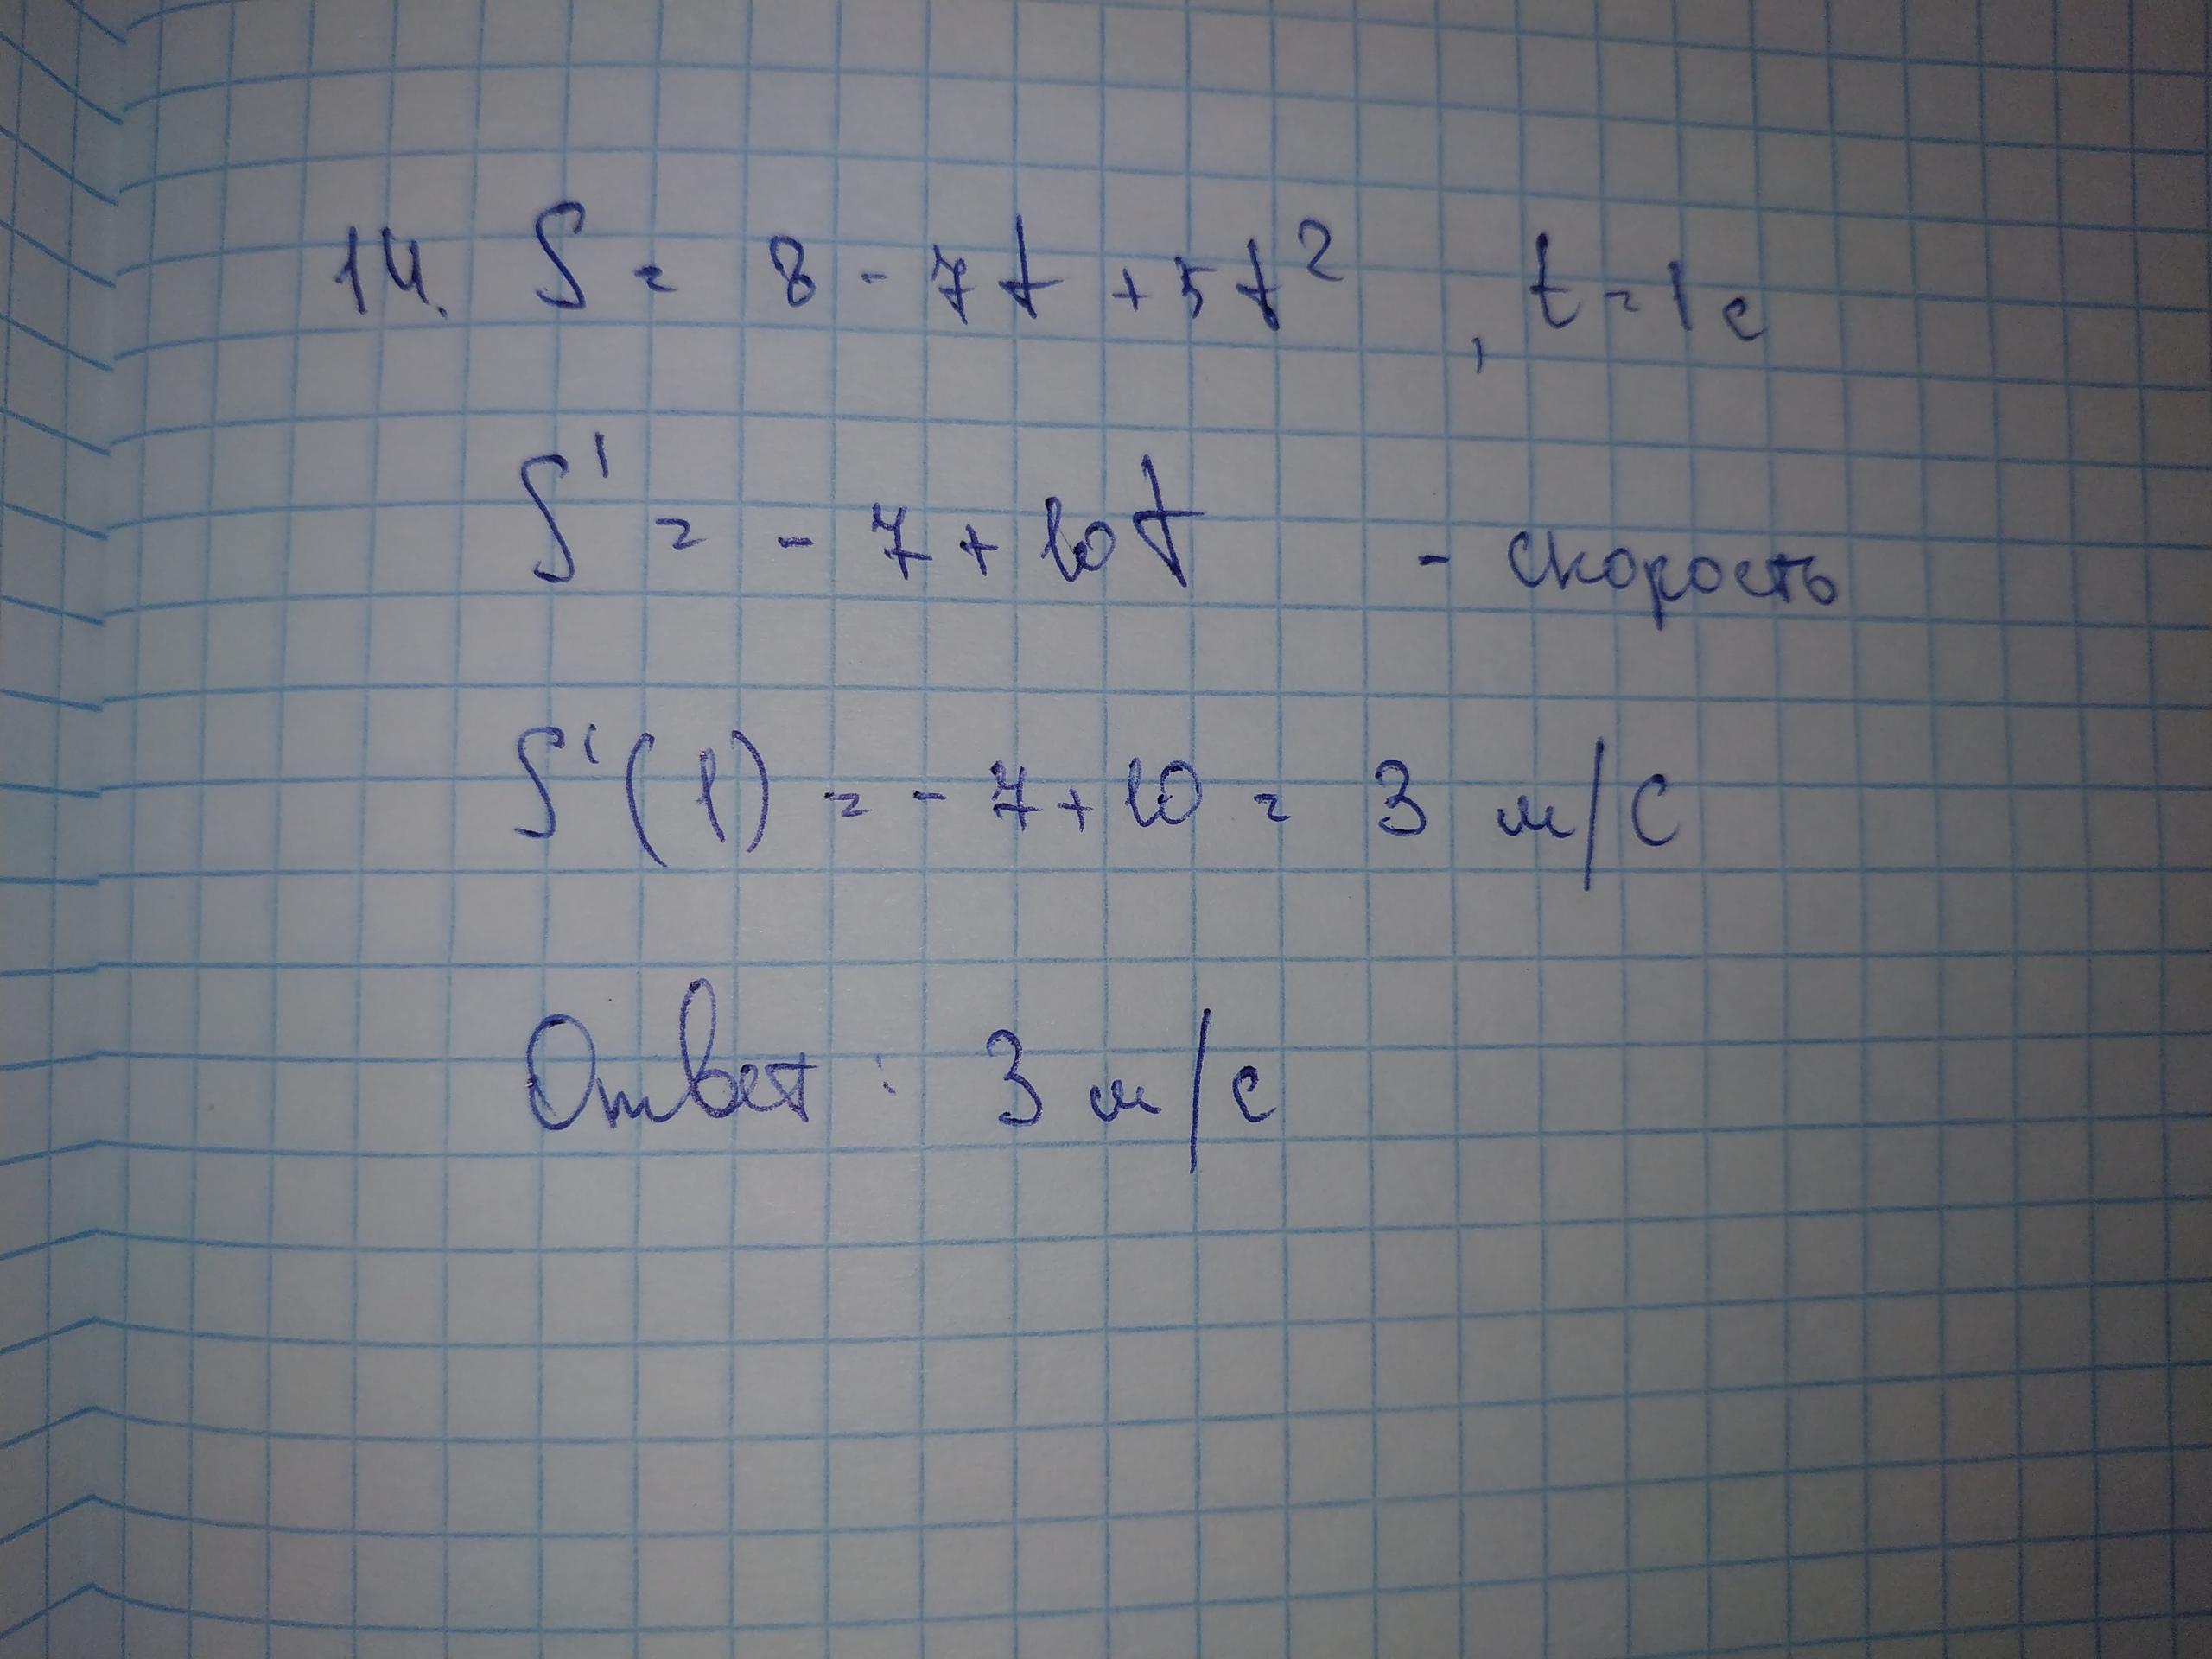 14. S = 8 - 7t + 5t² , t = 1 с
S' = - 7 + 10t - скорость
S'(1) = - 7 + 10 = 3 м/с
Ответ : 3 м/с